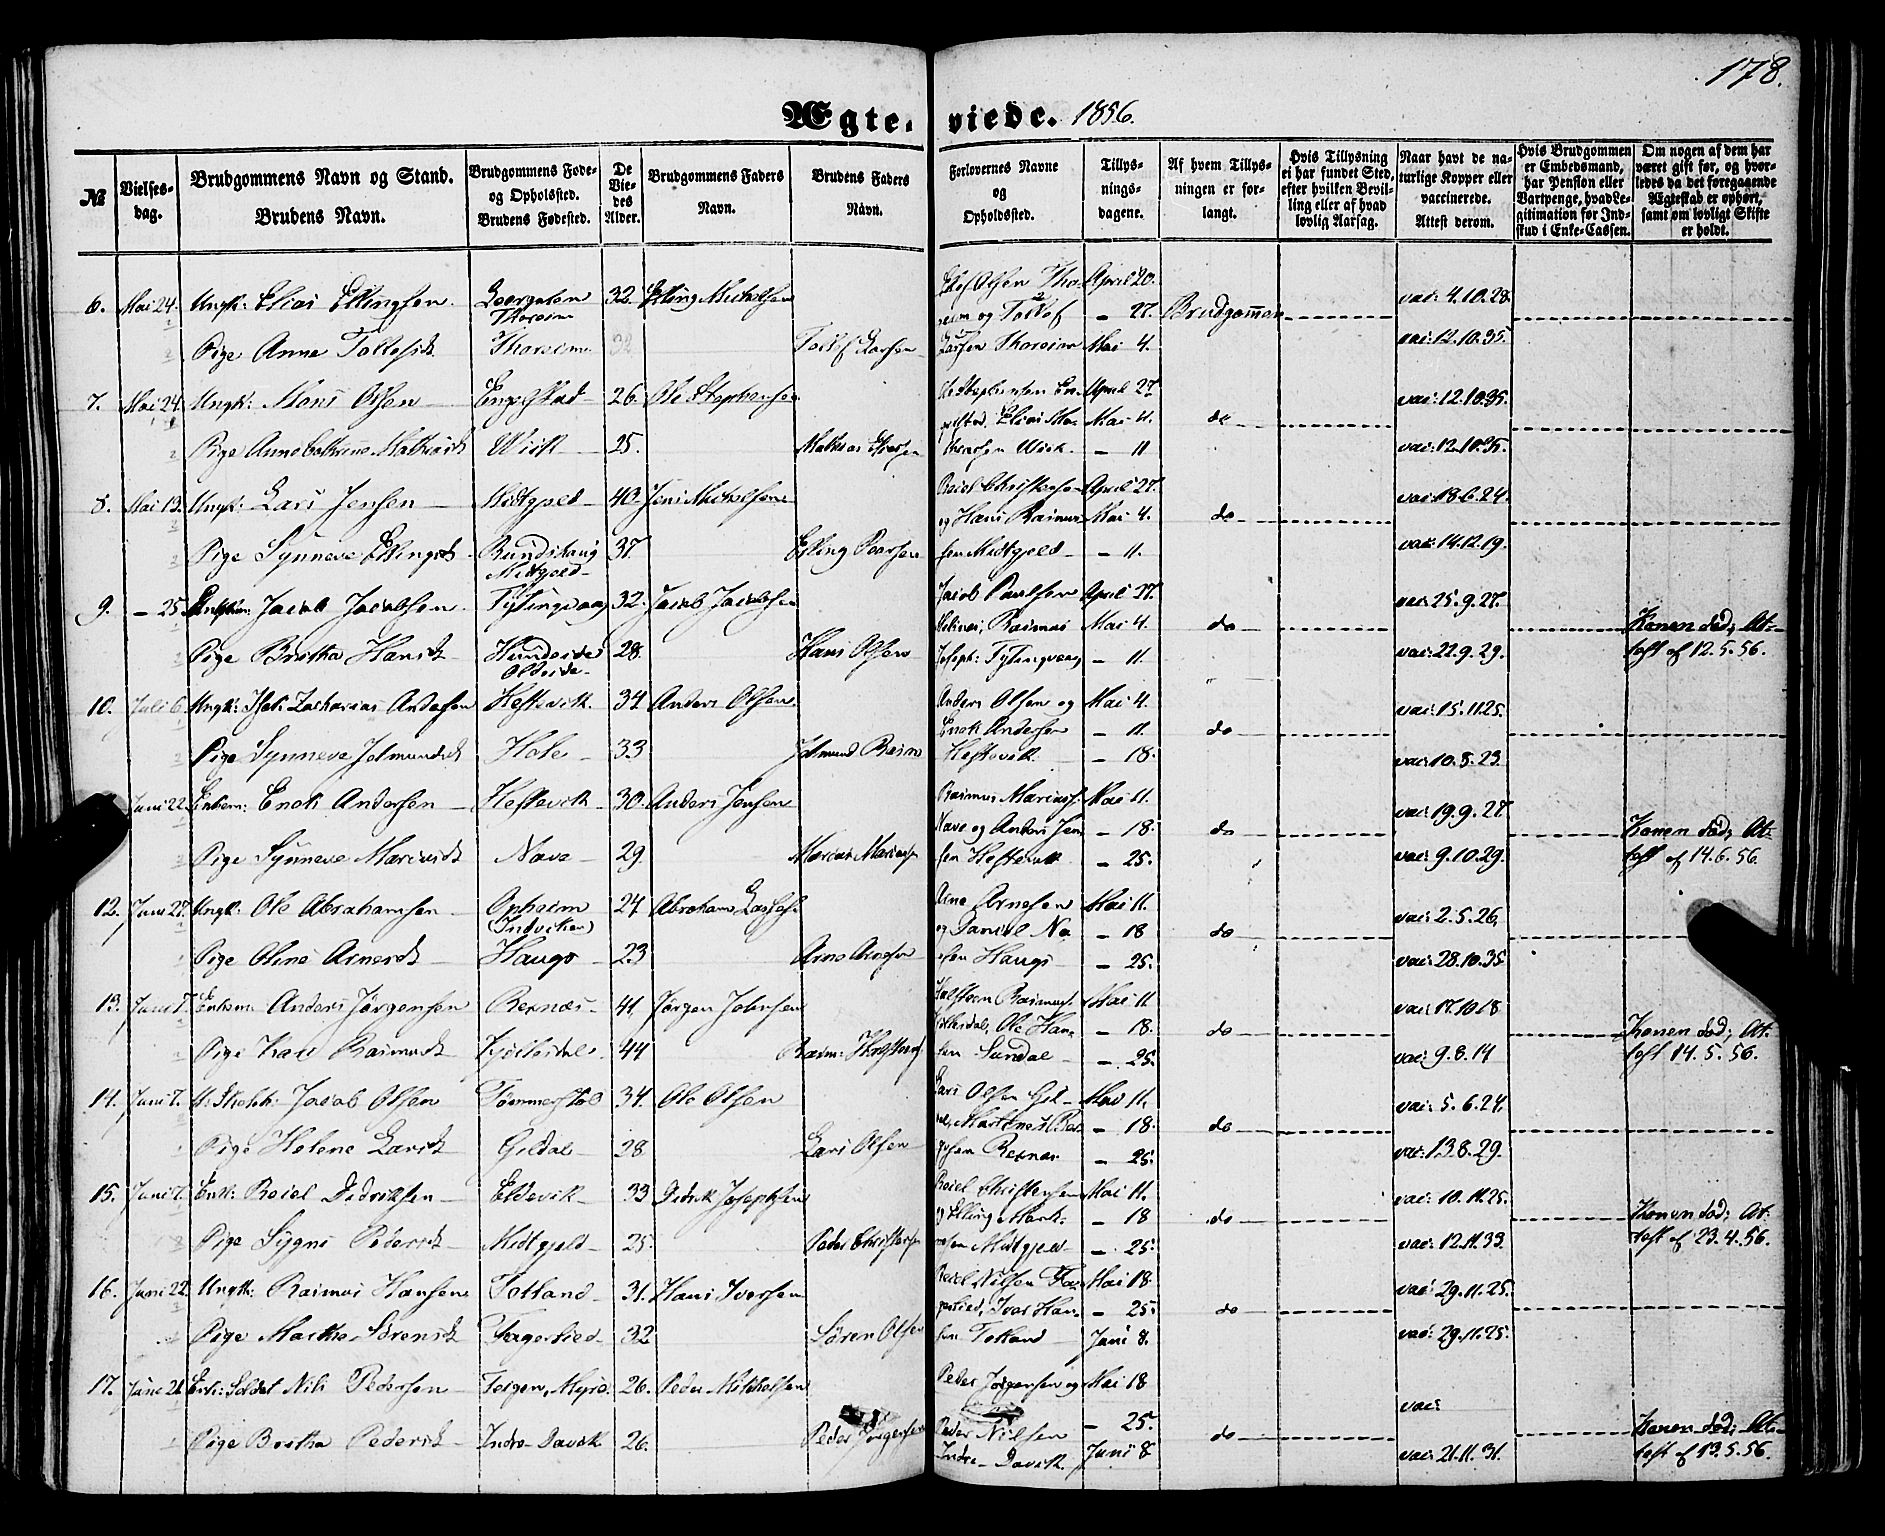 178.
Ægteviede. 1856.
№
Vielsesdag.
Brudgommens Navn og Stand.
Brudens Navn.
Brudgommens Føde- og Opholsted.
Brudens Fødested.
De Viedes Alder.
Brudgommens Faders Navn.
Brudens Faders Navn.
Forlovernes Navne og Opholdsted.
Tillysningsdagene.
Af hvem Tillysningen er forlangt.
Hvis Tillysning ei har fundet Sted, efter hvilken Bevilling eller af hvad lovlig Aarsag.
Naar havt de naturlige Kopper eller vaccinerede. Attest derom.
Hvis Brudgommen er Embedsmand, har Pension eller Vartpenge, hvad Legitimation for Indskud i Enke-Cassen.
Om nogen af dem har været gift før, og hvorledes da det foregaaende Ægteskab er ophørt, samt om lovligt Skifte er holdt.
6. Mai 24. Ungk: Elias Ellingsen 32. Elling Michelsen Olsen April 20. vac: 4.10.28.
og Tollef – 27. Brudgomman
Pige Anne Tollefsdt 32 Tollef Larsen Larsen Mai 4. vac: 12.10.35.
7. Mai 24. Ungk: Mons Olsen Engelstad 26. Ole Stephansen April 27 vac: 12.10.35.
Elias Mai 4. do
Pige Anne Cathrine Mathiasdt Wiik 25. Wiik – 11 vac: 12.10.35.
8. Mai 13. Ungk: Lars Jensen Midtgoed 40. Jens Michelsen Reiel Christensen April 27. vac: 18.6.24.
og Hans Rasmus Mai 4. do
Pige Synneve Ellingsdt 37. Elling sen Midtgoed – 11. vac: 14.12.19.
Midtgoed
9. – 25. Jacob Jacobsen Tytingvaag 32. Jacob Jacobsen Jacob Paulsen April 27. vac: 25.9.27.
Rasmus Mai 4. do Konen død; At-
Pige Britha Hansdt 28. Hans Olsen Joseph: Tytingvaag – 11. vac: 22.9.29. test af 12.5.56.
Oldeide
10. Juli 6. Ungk: Zacharias Andersen Hestevik 34 Anders Olsen Anders Olsen og Mai 4. vac: 15.11.25.
Enok Andersen – 11. do
Pige Synneve Jetmundsdt Hole 33 Jetmund Rasm Hestevik – 18. vac: 10.8.23.
Juni 22. Enkem: Enok Andersen Hestevik 30. Anders Jensen Rasmus Mariuss. Mai 11. vac: 19.9.27
Nave og Anders Jen – 18. do Konen død; At-
Pige Synneve Mariusdt Nave 29. Marius Mariuss sen Hestevik – 25. vac: 9.10.29. test af 14.6.56.
12. Juni 27. Ungk: Ole Abrahamsen Opheim 24 Abraham Arne Arnesen Mai 11. vac: 2.5.26.
(Indviken) og Daniel – 18 do
Pige Oline Arnesdt Hauge 23 Arne Arnesen Hauge – 25. vac: 28.10.35
13. Juni 7. Enkem: Anders Jørgensen Rexnæs 41. Jørgen Johnsen Rasmuss. Mai 11 vac: 17.10.18.
Ole Han – 18. do Konen død; At-
Pige Kari Rasmusdt 44 Rasm: sen Sundal – 25. vac: 9.8.14 test 14.5.56.
14. Juni 7. Jacob Olsen Tømmerstøl 34. Ole Olsen Lars Olsen Gil Mai 11. vac: 5.6.24.
– 18. do
Pige Helene Larsdt Gildal 28 Lars Olsen Rexnæs – 25. vac: 13.8.29.
15. Juni 7. Enk: Reiel Didriksen Eldevik 33 Didrik Josephsen Reiel Christensen Mai 11. vac: 10.11.25.
og Elling – 18 do Konen død; At-
Pige Sygni Pedersdt Midtgjeld 25. Peder Christensen Midtgjeld – 25. vac: 12.11.33. test af 23.4.56.
16. Juni 22. Ungk: Rasmus Hansen Totland 31. Hans Iversen Reiel Nilsen Mai 18. vac: 29.11.25.
Ivar Han – 25. do
Pige Martha Sørensdt 32 Søren Olsen sen Totland Juni 8. vac: 29.11.25.
17. Juni 21 Enk: Soldat Nils Pedersen 26. Peder Michelsen Peder Jørgensen og Mai 18 vac:
– 25. Konen død; At-
Pige Britha Pedersdt Indre Davik 26. Peder Jørgensen Peder Nilsen do
Indre Davik. Juni 8 vac: 21.11.31. test af 13.5.56.